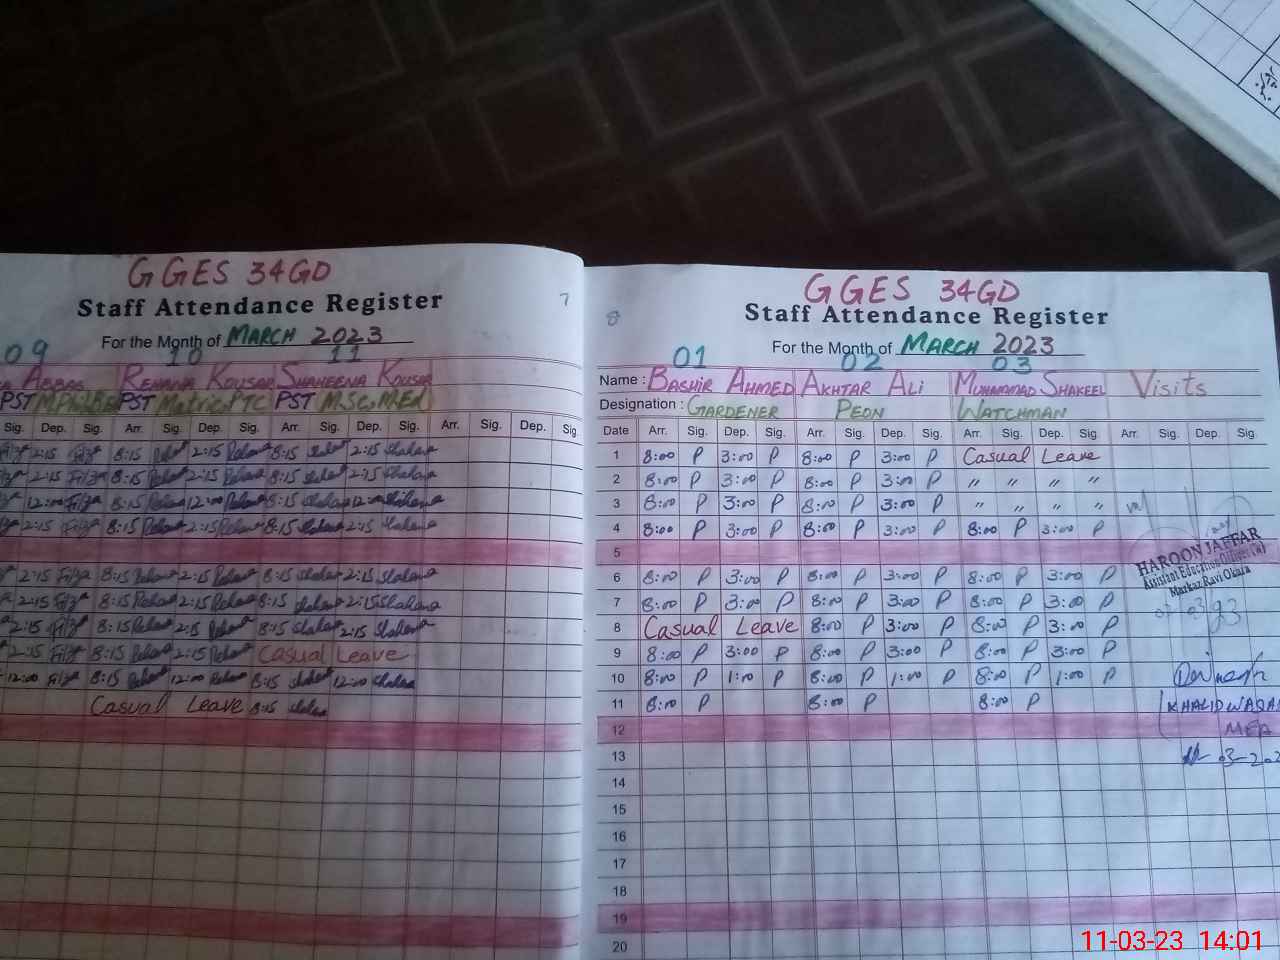 GGES 34GD
Staff Attendance Register
7
For the Month of MARCH 2023
09 10 11
ABBAS REHANA KOUSAR SHAHEENA KOUSAR
PST M.Phil B.Ed PST Matric, PTC PST M.Sc, M.Ed
Sig. Dep. Sig. Arr. Sig. Dep. Sig. Arr. Sig. Dep. Sig. Arr. Sig. Dep. Sig.
2:15 8:15 2:15 8:15 2:15
2:15 8:15 2:15 8:15 2:15
12:00 8:15 12:00 8:15 12:00
2:15 8:15 2:15 8:15 2:15
2:15 8:15 2:15 8:15 2:15
2:15 8:15 2:15 8:15 2:15
2:15 8:15 2:15 8:15 2:15
2:15 8:15 2:15 Casual Leave
12:00 8:15 12:00 8:15 12:00
Casual Leave 8:15
GGES 34GD
8 Staff Attendance Register
For the Month of MARCH 2023
01 02 03
Name : BASHIR AHMED AKHTAR ALI MUHAMMAD SHAKEEL Visits
Designation : GARDENER PEON WATCHMAN
Date Arr. Sig. Dep. Sig. Arr. Sig. Dep. Sig. Arr. Sig. Dep. Sig. Arr. Sig. Dep. Sig.
1 8:00 P 3:00 P 8:00 P 3:00 P Casual Leave
2 8:00 P 3:00 P 8:00 P 3:00 P " " " "
3 8:00 P 3:00 P 8:00 P 3:00 P " " " "
4 8:00 P 3:00 P 8:00 P 3:00 P 8:00 P 3:00 P
5
6 8:00 P 3:00 P 8:00 P 3:00 P 8:00 P 3:00 P
7 8:00 P 3:00 P 8:00 P 3:00 P 8:00 P 3:00 P
8 Casual Leave 8:00 P 3:00 P 8:00 P 3:00 P
9 8:00 P 3:00 P 8:00 P 3:00 P 8:00 P 3:00 P
10 8:00 P 1:00 P 8:00 P 1:00 P 8:00 P 1:00 P
11 8:00 P 8:00 P 8:00 P
12
13
14
15
16
17
18
19
20
HAROON JAFFAR
Assistent Education Officer (W)
Markaz Ravi Okara
KHALID WAQAR
MEA
03-202
11-03-23 14:01